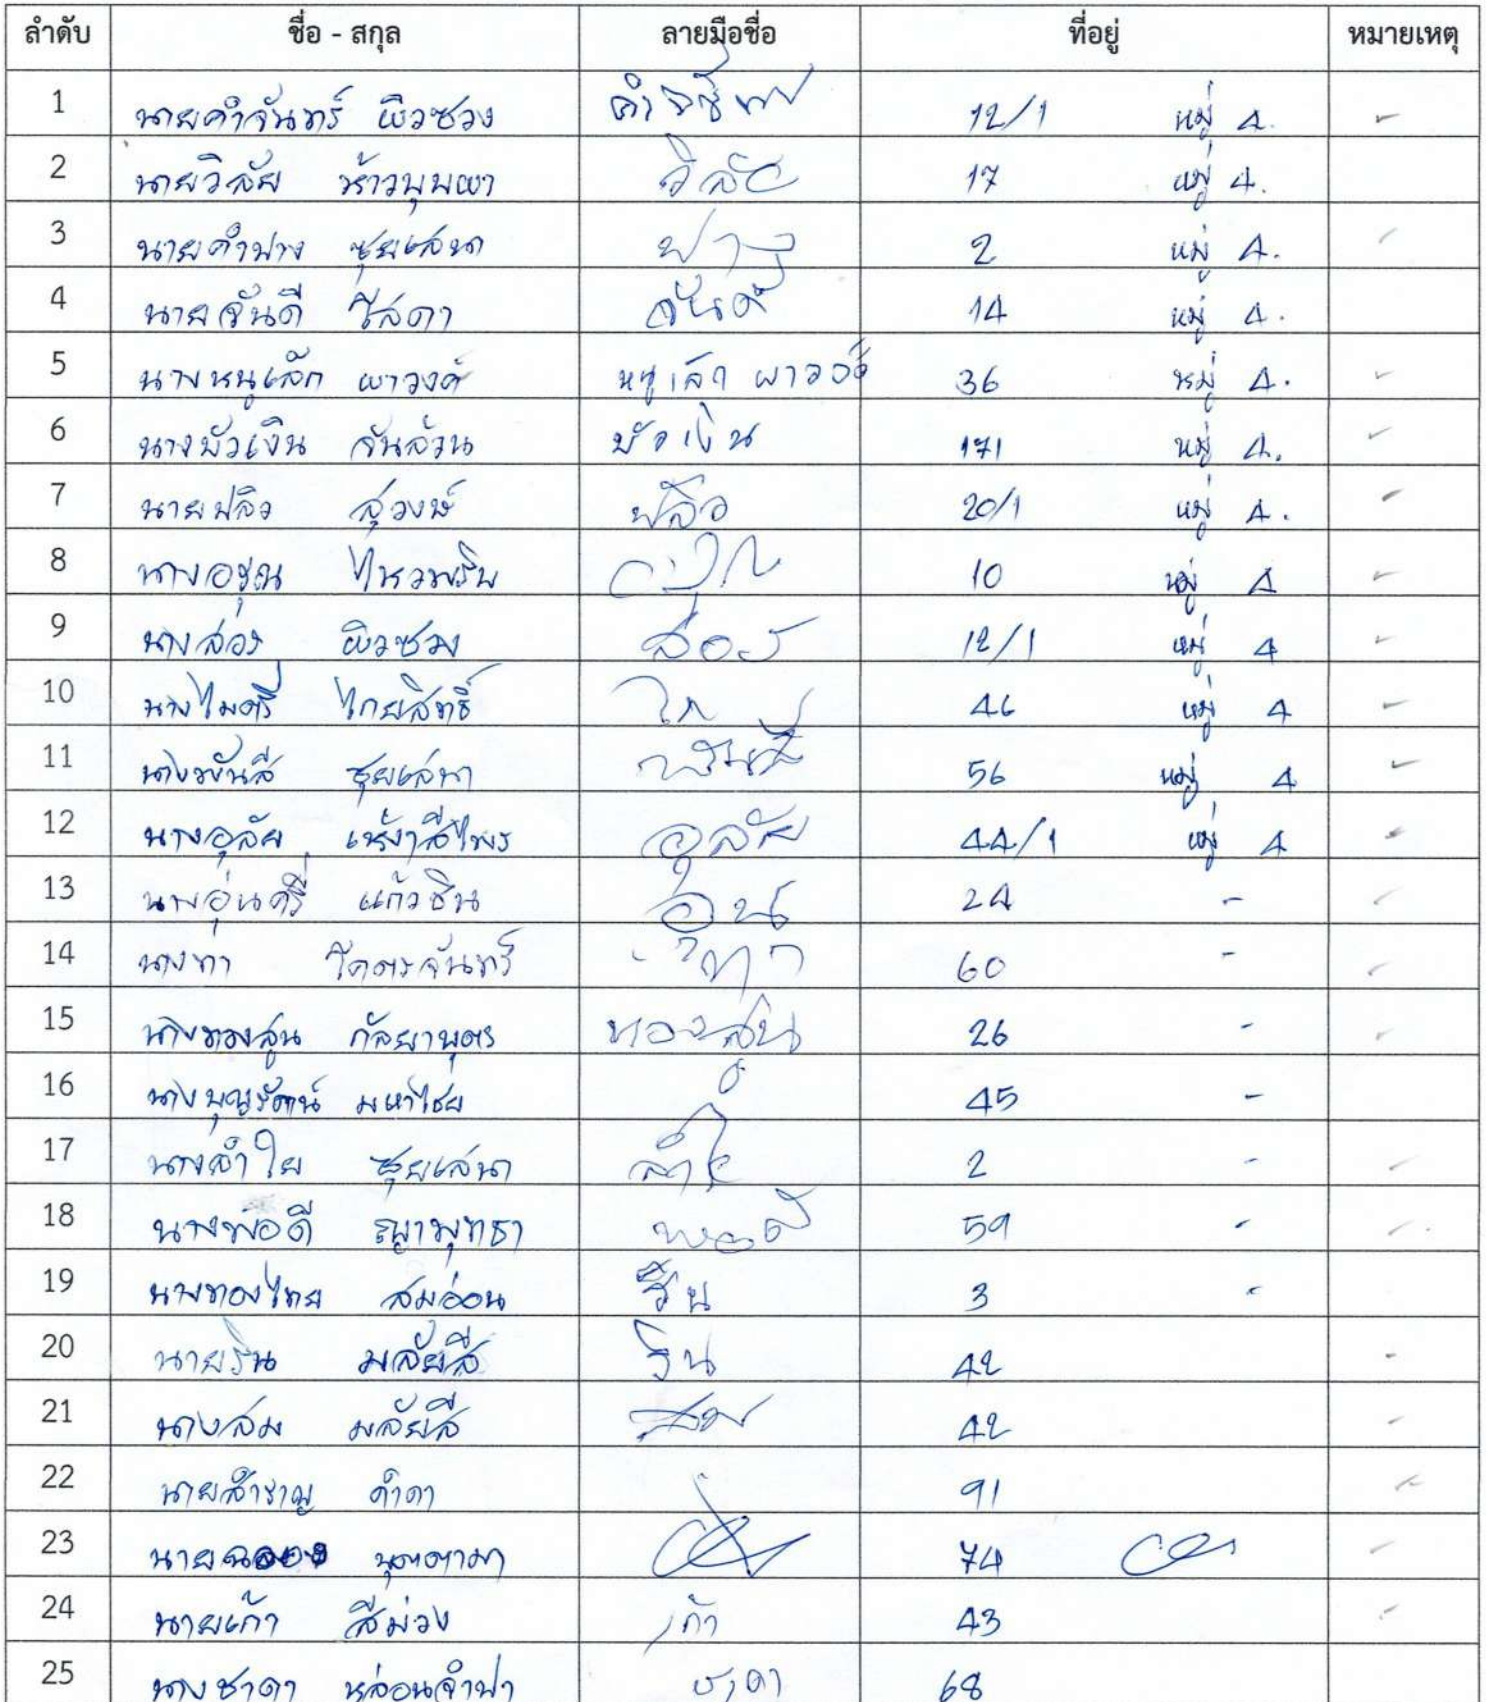 ลำดับ ชื่อ - สกุล ลายมือชื่อ ที่อยู่ หมายเหตุ
1 นายคำจันทร์ ผิวซวง 12/1 หมู่ 4.
2 นายวิลัย วิลัย 17 หมู่ 4.
3 นายคำปาง ซุยเสนา ปาง 2 หมู่ 4.
4 นายจันดี สีสดา จันดี 14 หมู่ 4.
5 นางหนูเล็ก ผาวงค์ หนูเล็ก ผาวงค์ 36 หมู่ 4.
6 นางบัวเงิน จันล้วน บัวเงิน 171 หมู่ 4.
7 นายปลิว สุวงษ์ ปลิว 20/1 หมู่ 4.
8 10 หมู่ 4
9 นางสอง ผิวซวง 12/1 หมู่ 4
10 นางไมตรี ไกยสิทธิ์ 46 หมู่ 4
11 ซุยเสนา 56 หมู่ 4
12 นางอุลัย อุลัย 44/1 หมู่ 4
13 นางอุ่นศรี แก้วชิน อุ่น 24 -
14 นางทา โคตรจันทร์ ทา 60 -
15 นางทองสูน กัลยาบุตร ทองสูน 26 -
16 นางบุญรัตน์ มหาไชย 45 -
17 นางลำใย ซุยเสนา ลำใย 2 -
18 นางพอดี พอดี 59 -
19 นางทองไทย สมอ่อน 3 -
20 นายริน มลัยสี ริน 42
21 นางสม มลัยสี สม 42
22 นายสำราญ คำดา 91
23 74
24 นายเก้า สีม่วง เก้า 43
25 นางชาดา หล่อนจำปา ชาดา 68